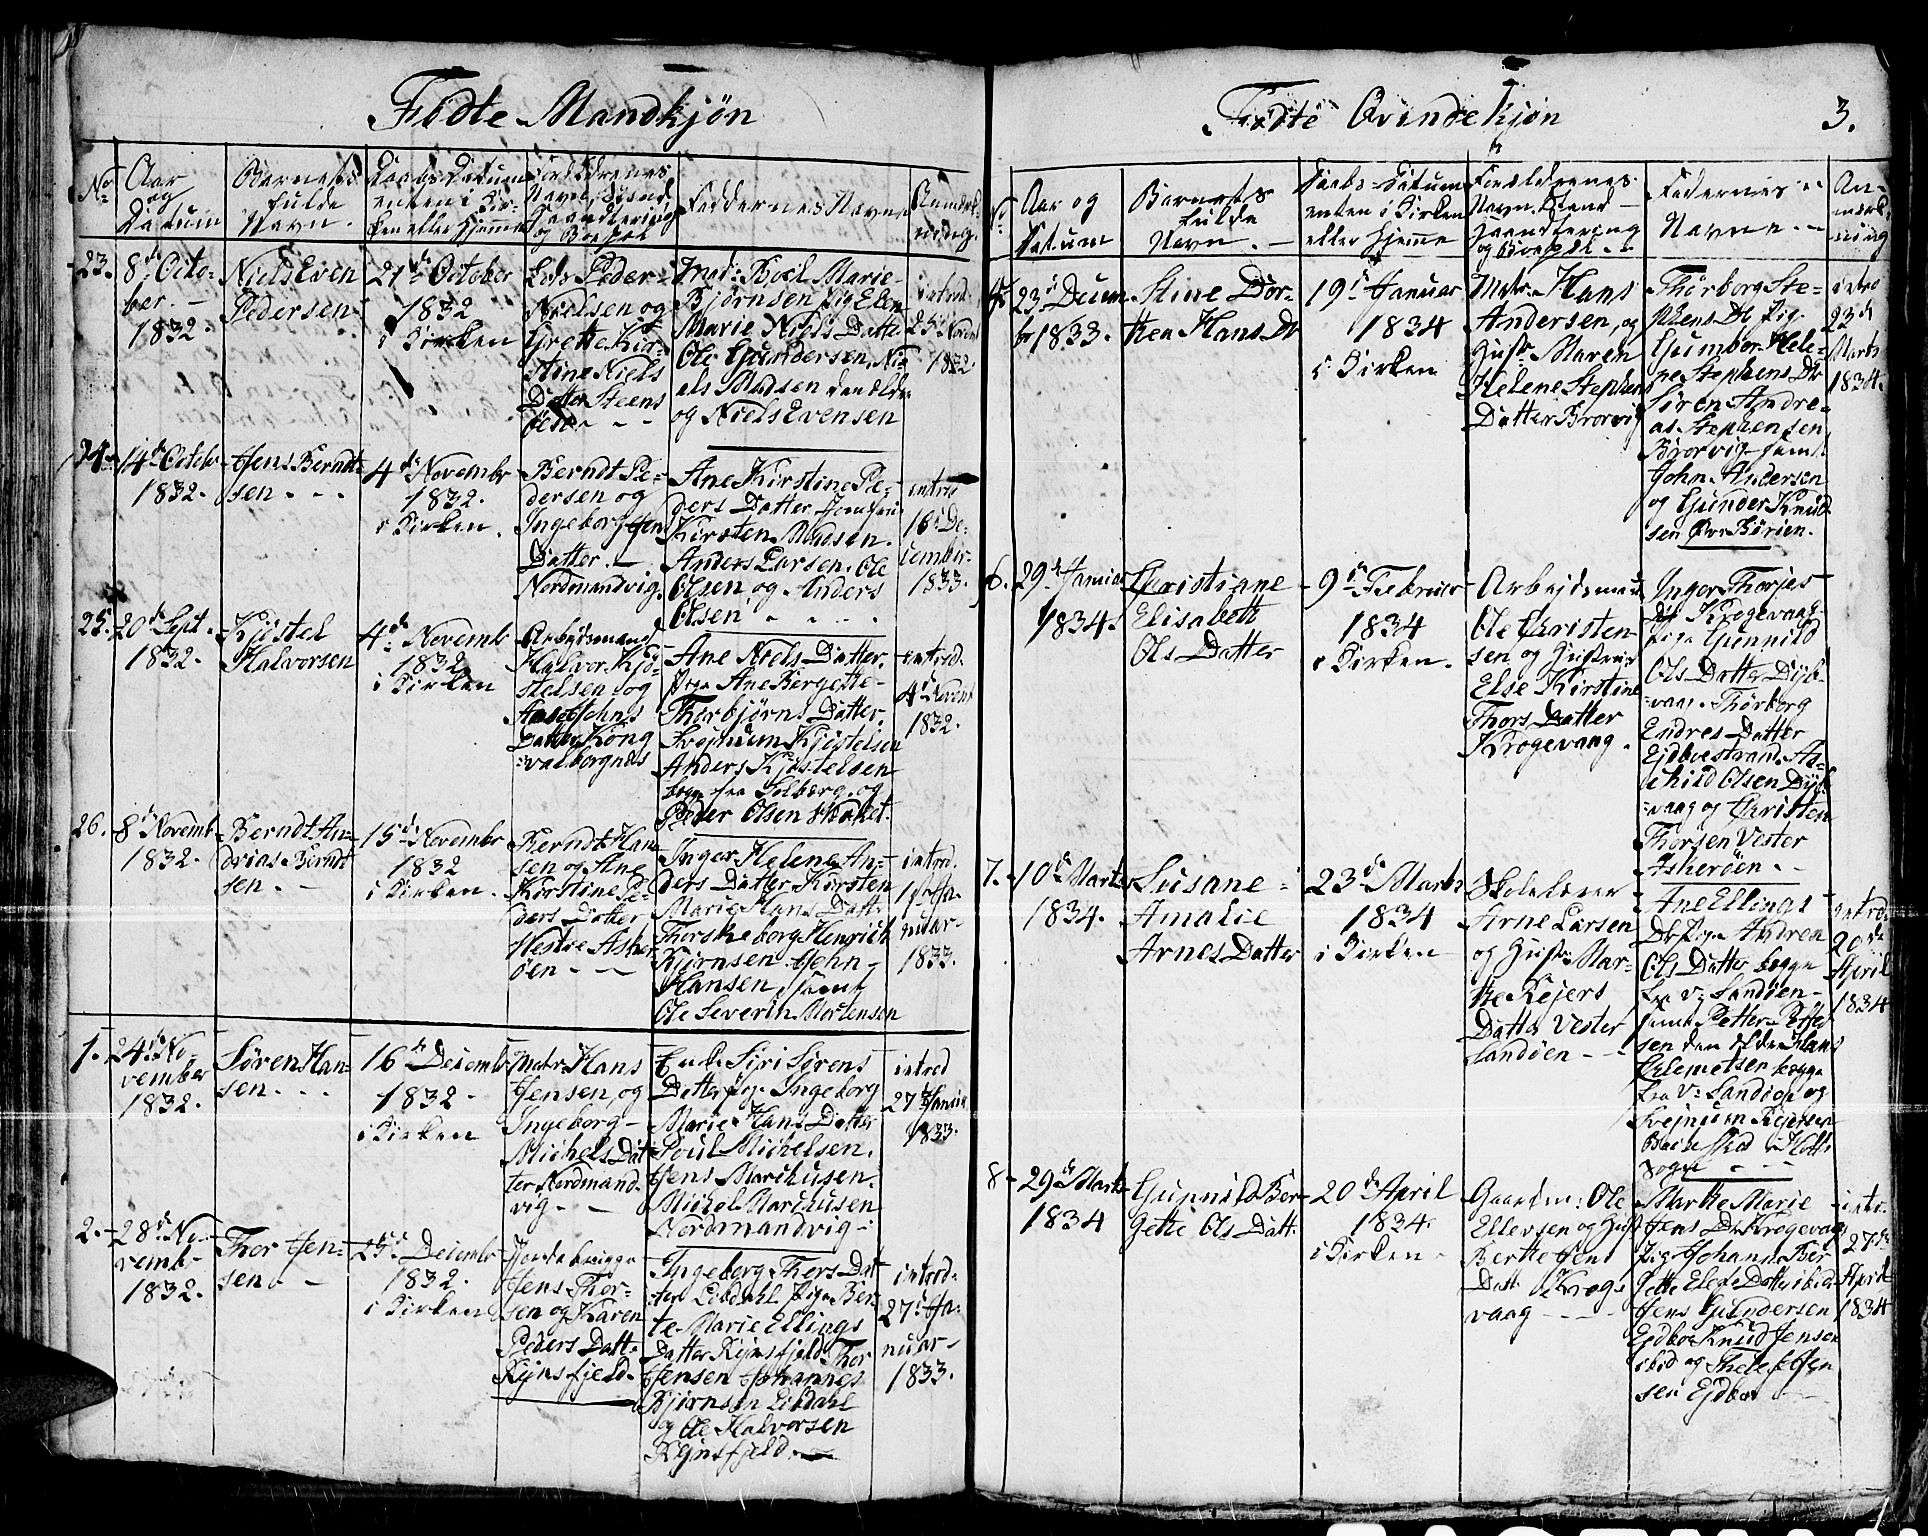 Födte Mandkjön
No
Aar
og
Datum
Barnets
fulde
Navn.
Daabs Datum
enten i Kir-
ken eller hjemme
Forældrenes
Navn, Stand,
Haandtering
og Bopæl
Faddernes Navne
Anmærk-
ning.
23.
8de Octo-
ber. -
1832.
Niels Even
Pedersen
21de October
1832
i Kirken
Lods Peder
Nielsen og
Grethe Kir-
stine Niels
Datter Steens
öen. - -
Mad: Boel Marie
Björnsen, Pige Elen
Marie Niels Datter
Ole Gundersen, Ni-
els Madsen den ældre
og Niels Evensen
introd:
25de Novbr
1832
24.
14de Octobr
1832.
Jens Berndt-
sen. - -
4de Novembr
1832.
i Kirken.
Berndt Pe-
dersen og
Ingeborg Jens
Datter. -
Nordmandvig
Ane Kirstine Pe-
ders Datter
Kirsten Madsen.
Anders Larsen. Ole
Olsen og Anders
Olsen
introd
16de De-
cember
1833.
25.
20de Sept.
1832.
Kjöstel
Halvorsen
4de Novemb
1832
i Kirken
Arbejdsmand
Halvor Kjö-
stelsen og
Johns
Datter Kong
valborgnæs
Ane Niels Datter.
Pige Ane Bergette
Thorbjörns Datter.
Svejnum Kjöstelsen
Anders Kjöstelsen
begge fra Solberg. og
Peder Olsen
introd.
4de Novemb
1832.
26.
8de Novemb
1832.
Berndt An-
drias Berndt
sen. -
15de Novembr
1832
i Kirken.
Berndt Han-
sen og Ane
Kirstine Pe-
ders Datter
Vestre Asker
öen - -
Inger Helene An-
ders Datter Kirsten
Marie Hans Datt.
Thorskeborg Henrich
Björnsen. John
Hansen, samt
Ole Severin Mortensen
introd.
1de Ja-
nuar
1833.
1.
24de No-
vember
1832.
Sören Han-
sen. - -
16de Decembr
1832.
i Kirken
Matr. Hans
Jensen, og
Ingeborg
Michels Dat
ter Nordmand-
vig - -
Enke Siri Sörens
Datter, Pige Ingeborg
Marie Hans Datter
Poul Michelsen.
Jens Marchusen.
Michel Marchusen
Nordmandvig
introd
27de Januar
1833.
2.
28de No-
vemb-
1832.
Thor Jen-
sen. -
25de Decembr
1832.
i Kirken
Jordebrugger
Jens Thor-
sen og Karen
Peders Datt.
Rejnsfjeld.
Ingeborg Thors Dat
ter Libdahl. Pige Ben-
te Marie Ellings
Datter Rejnsfjeld. Thor
Jensen Johannes
Björnsen Libdahl
og Ole Halvorsen
Rejnsfjeld.
introd-
27de Ja-
nuar
1833.
Födte Qvindekjön
3.
No
Aar og
Datum
Barnets
fulde
Navn. -
Daabs-Datum
enten i Kirken
eller hjemme
Forældrenes
Navn, Stand
Haandtering
og Bopæl. -
Faddernes
Navne. -
An-
mærk-
ning
23de Decem-
br 1833.
Stine Dor-
thea Hans Dr
19de Januar
1834
i Kirken
Matr. Hans
Andersen, og
Hustr. Maren
Helene Stephens
Datter Brorvig
Thörborg Ste-
phens Dr Pig.
Gumbor Hele-
ne Stephens Dr
Sören Andre-
as Stephensen
Brorvig samt
John Andersen
og Gunder Knud-
sen
introd
23de
Marts
1834.
6.
29de Januar
1834.
Christiane
Elisabeth
Ols Datter
9de Februar
1834
i Kirken.
Arbejdsmand
Ole Christen-
sen og Hustrue
Else Kirstine
Thors Datter
Krogevaag.
Inger Thorjes
Dr Krogevaag
Pige Gunnild
Ols Datter Dyb-
vaag. Thörborg
Endres Datter
Ejdboestrand. As-
child Olsen Dyb-
vaag og Christen
Thorsen Vester
Askeröen. -
7.
10de Marts
1834.
Susane
Amalie
Arnes Datter
23de Marts
1834
i Kirken
Skolelærer
Arne Larsen
og Hustr. Mar-
the Rejers
Datter Vester
Sandöen - -
Ane Ellings
Dr Pige Andrea
Ols Datter begge
fra V: Sandöen
samt Petter Petter
sen den ældre Hans
Clemetsen begge
fra V: Sandöen og
Svejnum Rejersen
i Holts
Sogn - - -
introd.
20de
April
1834
8.
29de Marts
1834
Gunnild Ber
gethe Ols Datt.
20de April
1834.
i Kirken.
Gaardm: Ole
Ellevsen og Hust
Berthe Jens
Datt. Krogs
vaag - - -
Marthe Marie
Jens Dr Krogevaag
Pig. Johane Ber
gethe Elefs Datter ibid
Jens Gundersen
Ejdboe Knud Jensen
ibid og Thelef Jen
sen Ejdboe -
intr.
27de
April
1834